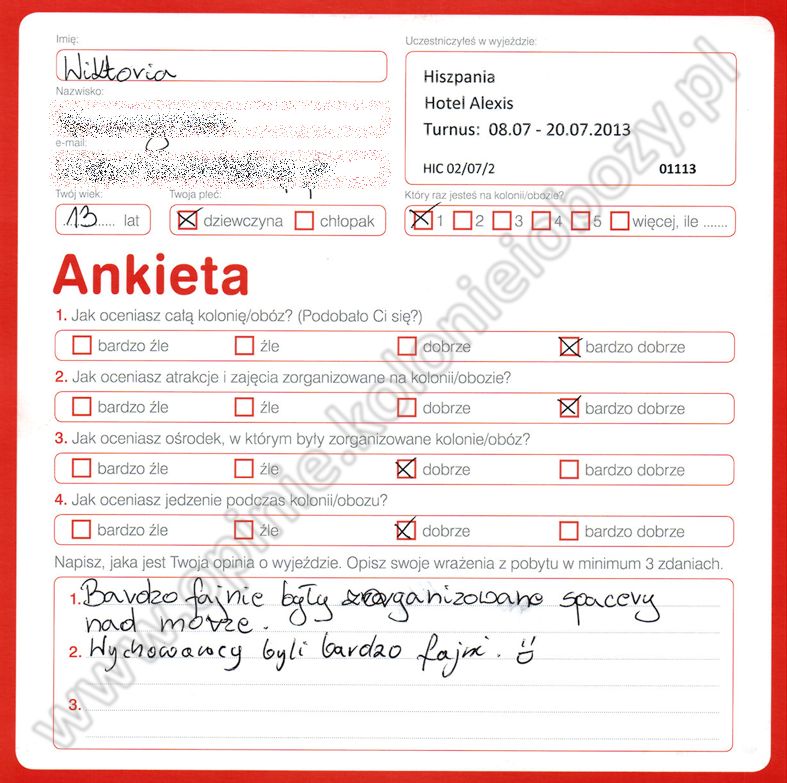 Imię:
Wiktoria
Nazwisko:
e-mail:
Twój wiek:
13 lat
Twoja płeć:
dziewczyna chłopak
Uczestniczyłeś w wyjeździe:
Hiszpania
Hotel Alexis
Turnus: 08.07 - 20.07.2013
HIC 02/07/2 01113
Który raz jesteś na kolonii/obozie?
1 2 3 4 5 więcej, ile .......
Ankieta
1. Jak oceniasz całą kolonię/obóz? (Podobało Ci się?)
bardzo źle źle dobrze bardzo dobrze
2. Jak oceniasz atrakcje i zajęcia zorganizowane na kolonii/obozie?
bardzo źle źle dobrze bardzo dobrze
3. Jak oceniasz ośrodek, w którym były zorganizowane kolonie/obóz?
bardzo źle źle dobrze bardzo dobrze
4. Jak oceniasz jedzenie podczas kolonii/obozu?
bardzo źle źle dobrze bardzo dobrze
Napisz, jaka jest Twoja opinia o wyjeździe. Opisz swoje wrażenia z pobytu w minimum 3 zdaniach.
1. Bardzo fajnie były zorganizowane spacery
nad morze.
2. Wychowawcy byli bardzo fajni.
3.
www.opinie.kolonieiobozy.pl